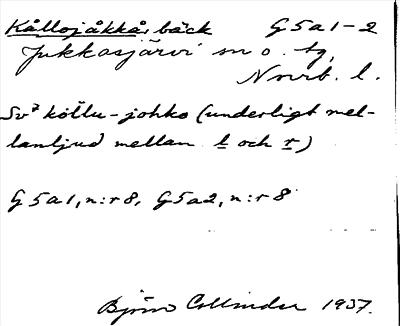 Kållojåkkå, bäck G5a1-2
Jukkasjärvi sn o. tg,
Norrb. l.
Sv² köllu-johko (underligt mel-
lanljud mellan l och r)
G5a1, n:r 8, G5a2, n:r 8
Björn Collinder 1937.